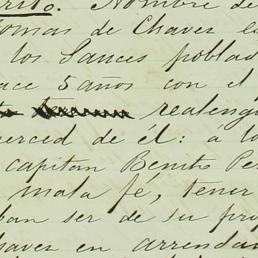 rrito. Nombre de
omas de Chaves es
los Sauces poblad
ace 5 años con el
realeng
erced de él: á lo
capitan Benito Pe
mala fé, tener
ban ser de su pro
haves en arrendam